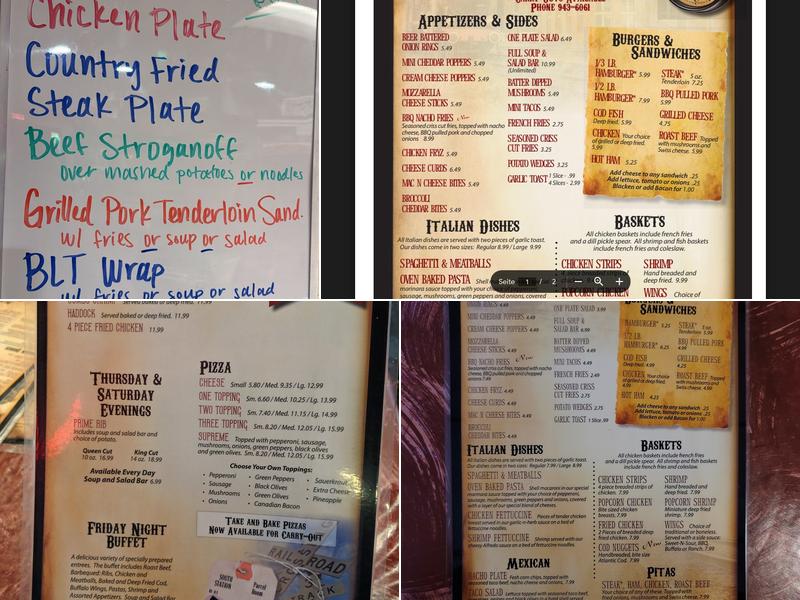 Chicken Plate
Country Fried
Steak Plate
Beef Stroganoff
over mashed potatoes or noodles
Grilled Pork Tenderloin Sand.
w/ fries or soup or salad
BLT Wrap
w/ fries or soup or salad
PHONE 943-6061
APPETIZERS & SIDES
BEER BATTERED
ONION RINGS 5.49
MINI CHEDDAR POPPERS 4.49
CREAM CHEESE POPPERS 5.49
MOZZARELLA
CHEESE STICKS 5.49
BBQ NACHO FRIES
Seasoned criss cut fries, topped with nacho
cheese, BBQ pulled pork and chopped
onions 8.99
CHICKEN FRYZ 5.49
CHEESE CURDS 6.49
MAC N CHEESE BITES 5.49
BROCCOLI
CHEDDAR BITES 5.49
ONE PLATE SALAD 6.49
FULL SOUP &
SALAD BAR 10.99
(Unlimited)
BATTER DIPPED
MUSHROOMS 5.49
MINI TACOS 5.49
FRENCH FRIES 2.75
SEASONED CRISS
CUT FRIES 3.25
POTATO WEDGES 3.25
GARLIC TOAST 1 Slice .99
4 Slices - 2.99
BURGERS &
SANDWICHES
1/3 LB.
HAMBURGER* 5.99
1/2 LB.
HAMBURGER* 7.99
COD FISH
Deep fried. 5.99
CHICKEN Your choice
of grilled or deep fried.
5.99
HOT HAM 5.25
STEAK* 5 oz.
Tenderloin 7.25
BBQ PULLED PORK
5.99
GRILLED CHEESE
4.75
ROAST BEEF Topped
with mushrooms and
Swiss cheese. 5.99
Add cheese to any sandwich .25
Add lettuce, tomato or onions .25
Blacken or add Bacon for 1.00
ITALIAN DISHES
All Italian dishes are served with two pieces of garlic toast.
Our dishes come in two sizes: Regular 8.99 / Large 9.99
SPAGHETTI & MEATBALLS
OVEN BAKED PASTA
marinara sauce topped with your choice of pepperoni,
sausage, mushrooms, green peppers and onions, covered
BASKETS
All chicken baskets include french fries
and a dill pickle spear. All shrimp and fish baskets
include french fries and coleslaw.
CHICKEN STRIPS
POPCORN CHICKEN
SHRIMP
Hand breaded and
deep fried. 9.99
WINGS Choice of
Seite 1 / 2
HADDOCK Served baked or deep fried. 11.99
4 PIECE FRIED CHICKEN 11.99
THURSDAY &
SATURDAY
EVENINGS
PRIME RIB
Includes soup and salad bar and
choice of potato.
Queen Cut King Cut
10 oz. 16.99 14 oz. 18.99
Available Every Day
Soup and Salad Bar 6.99
FRIDAY NIGHT
BUFFET
A delicious variety of specially prepared
entrees. The buffet includes Roast Beef,
Barbequed Ribs, Chicken and
Meatballs, Baked and Deep Fried Cod,
Buffalo Wings, Pastas, Shrimp and
Assorted Appetizers. Soup and Salad Bar
PIZZA
CHEESE Small 5.80 / Med. 9.35 / Lg. 12.99
ONE TOPPING Sm. 6.60 / Med. 10.25 / Lg. 13.99
TWO TOPPING Sm. 7.40 / Med. 11.15 / Lg. 14.99
THREE TOPPING Sm. 8.20 / Med. 12.05 / Lg. 15.99
SUPREME Topped with pepperoni, sausage,
mushrooms, onions, green peppers, black olives
and green olives. Sm. 8.20 / Med. 12.05 / Lg. 15.99
Choose Your Own Toppings:
• Pepperoni • Green Peppers • Sauerkraut
• Sausage • Black Olives • Extra Cheese
• Mushrooms • Green Olives • Pineapple
• Onions • Canadian Bacon
TAKE AND BAKE PIZZAS
NOW AVAILABLE FOR CARRY-OUT!
RAILROAD
SOUTH
STATION
Parcel
Room
TRACK
MINI CHEDDAR POPPERS 4.49
CREAM CHEESE POPPERS 4.49
MOZZARELLA
CHEESE STICKS 4.49
BBQ NACHO FRIES New
Seasoned criss cut fries, topped with nacho
cheese, BBQ pulled pork and chopped
onions 7.99
CHICKEN FRYZ 4.49
CHEESE CURDS 4.49
MAC N CHEESE BITES 4.49
BROCCOLI
CHEDDAR BITES 4.49
ONE PLATE SALAD 4.99
FULL SOUP &
SALAD BAR 6.99
BATTER DIPPED
MUSHROOMS 4.49
MINI TACOS 4.49
FRENCH FRIES 2.25
SEASONED CRISS
CUT FRIES 2.75
POTATO WEDGES 2.75
GARLIC TOAST 1 Slice .99
SANDWICHES
HAMBURGER*
1/2 LB.
HAMBURGER* 6.25
COD FISH
CHICKEN Your choice
of grilled or deep fried.
4.99
HOT HAM 4.25
STEAK* 5 oz.
BBQ PULLED PORK
GRILLED CHEESE
ROAST BEEF Topped
with mushrooms and
Add cheese to any sandwich .25
Add lettuce, tomato or onions .25
Blacken or add Bacon for 1.00
ITALIAN DISHES
All Italian dishes are served with two pieces of garlic toast.
Our dishes come in two sizes: Regular 7.99 / Large 8.99
SPAGHETTI & MEATBALLS
OVEN BAKED PASTA Shell macaroni in our special
marinara sauce topped with your choice of pepperoni,
sausage, mushrooms, green peppers and onions, covered
with a layer of our special blend of cheeses.
CHICKEN FETTUCCINE Pieces of tender chicken
breast served in our garlic-n-herb sauce on a bed of
fettuccine noodles.
SHRIMP FETTUCCINE Shrimp served with our
cheesy Alfredo sauce on a bed of fettuccine noodles.
MEXICAN
NACHO PLATE Fresh corn chips, topped with
seasoned taco beef, nacho cheese and onions, 7.99
TACO SALAD Lettuce topped with seasoned taco beef,
BASKETS
All chicken baskets include french fries
and a dill pickle spear. All shrimp and fish baskets
include french fries and coleslaw.
CHICKEN STRIPS
4 piece breaded strips of
chicken. 7.99
POPCORN CHICKEN
Bite sized chicken
breasts. 7.99
FRIED CHICKEN
2 Pieces of breaded deep
fried chicken. 7.99
COD NUGGETS New
Handbreaded, bite size
Atlantic Cod. 7.99
SHRIMP
Hand breaded and
deep fried. 7.99
POPCORN SHRIMP
Miniature shrimp deep
fried. 7.99
WINGS Choice of
traditional or boneless.
Served with BBQ,
Sweet-N-Sour, BBQ,
Buffalo or Ranch. 7.99
PITAS
STEAK*, HAM, CHICKEN, ROAST BEEF